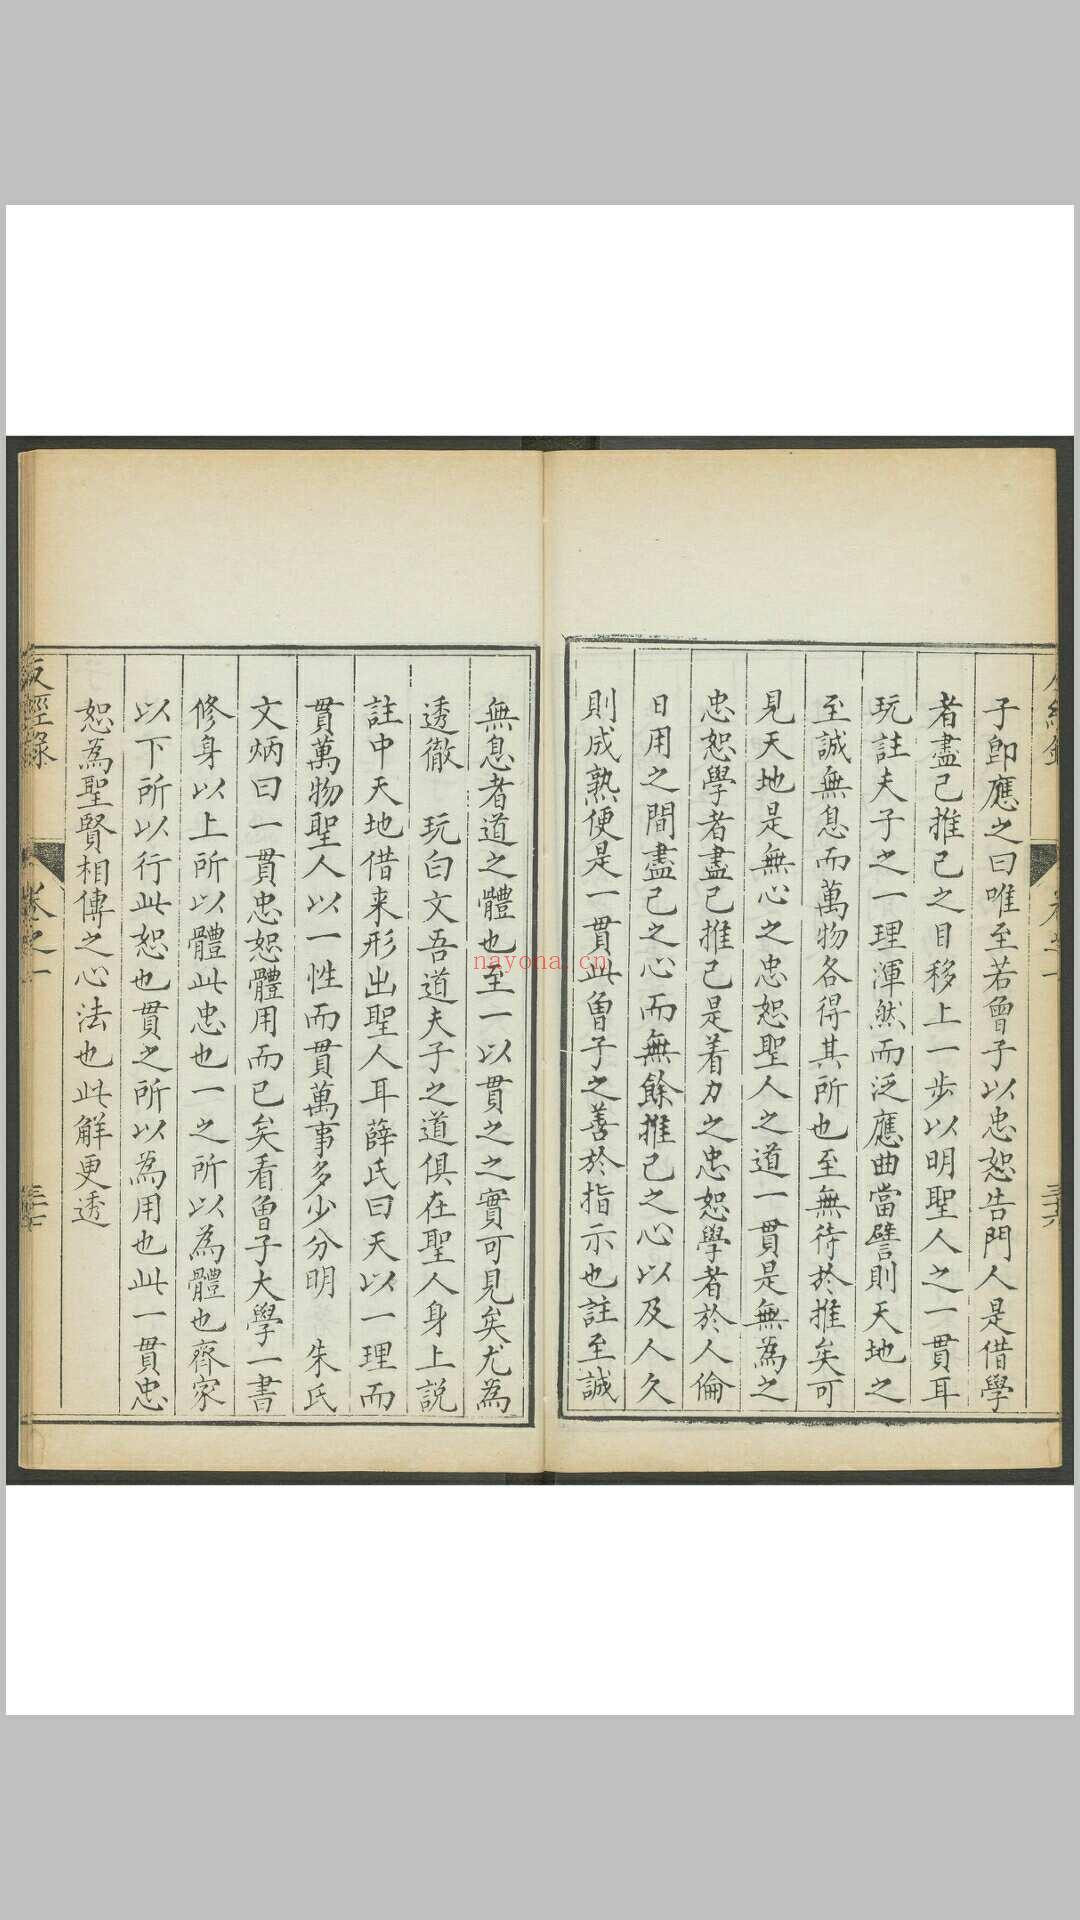 子即應之曰唯至若曾子以忠恕告門人是借學
者盡己推己之目移上一步以明聖人之一貫耳
玩註夫子之一理渾然而泛應曲當譬則天地之
至誠無息而萬物各得其所也至無待於推矣可
見天地是無心之忠恕聖人之道一貫是無為之
忠恕學者盡己推己是着力之忠恕學者於人倫
日用之間盡己之心而無餘推己之心以及人久
則成熟便是一貫此曾子之善於指示也註至誠
無息者道之體也至一以貫之之實可見矣尤為
透徹 玩白文吾道夫子之道俱在聖人身上説
註中天地借来形出聖人耳薛氏曰天以一理而
貫萬物聖人以一性而貫萬事多少分明 朱氏
文炳曰一貫忠恕體用而已矣看曾子大學一書
修身以上所以體此忠也一之所以為體也齊家
以下所以行此恕也貫之所以為用也此一貫忠
恕為聖賢相傳之心法也此解更透
反經錄
卷之一
nayona.cn